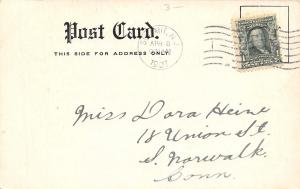 3-
Post Card.
THIS SIDE FOR ADDRESS ONLY.
1907
Miss Dora Heine
18 Union St.
S. Norwalk.
Conn.